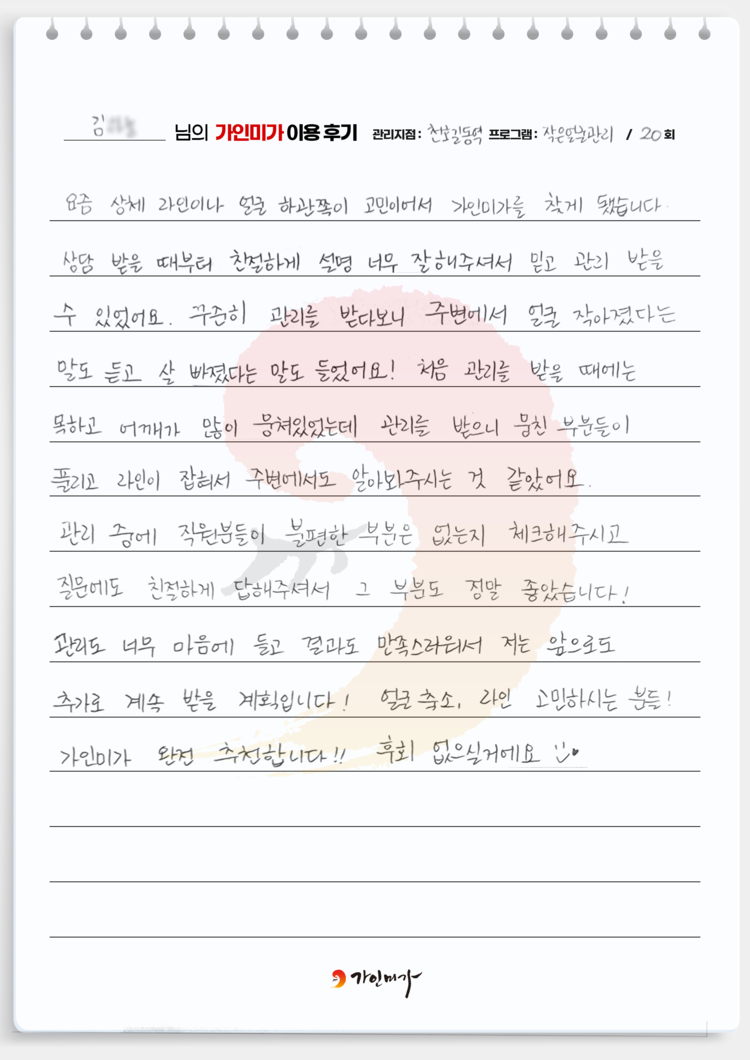 김 님의 가인미가 이용 후기 관리지점 : 천호길동역 프로그램 : 작은얼굴관리 / 20회
요즘 상체 라인이나 얼굴 하관쪽이 고민이어서 가인미가를 찾게 됐습니다.
상담 받을 때부터 친절하게 설명 너무 잘해주셔서 믿고 관리 받을
수 있었어요. 꾸준히 관리를 받다보니 주변에서 얼굴 작아졌다는
말도 듣고 살 빠졌다는 말도 들었어요! 처음 관리를 받을 때에는
목하고 어깨가 많이 뭉쳐있었는데 관리를 받으니 뭉친 부분들이
풀리고 라인이 잡혀서 주변에서도 알아봐주시는 것 같았어요.
관리 중에 직원분들이 불편한 부분은 없는지 체크해주시고
질문에도 친절하게 답해주셔서 그 부분도 정말 좋았습니다!
관리도 너무 마음에 들고 결과도 만족스러워서 저는 앞으로도
추가로 계속 받을 계획입니다! 얼굴축소, 라인 고민하시는 분들!
가인미가 완전 추천합니다!! 후회 없으실거에요
가인미가